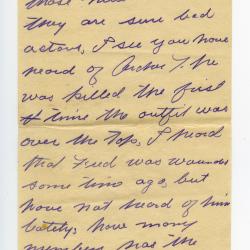 those
they are sure bad
actors, I see you have
heard of Archie T. He
was killed the first
time the outfit was
over the Top, I heard
that Fred was wounded
some time ago, but
have not heard of him
lately, how many
members has the